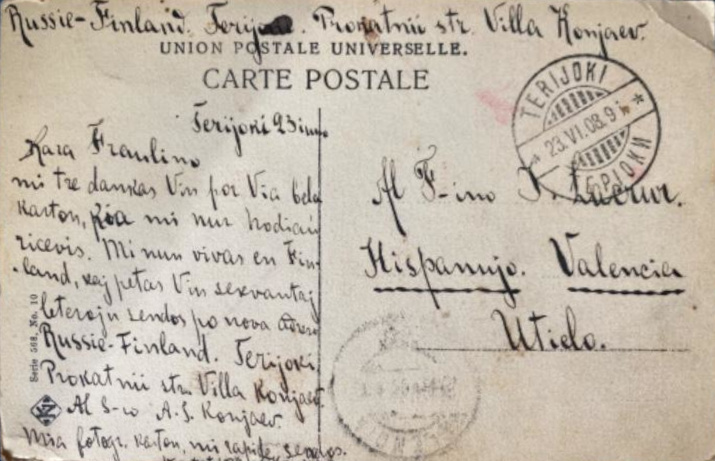 Russie-Finland. Terijoki. Prokatnii str. Villa Konjaev.
UNION POSTALE UNIVERSELLE.
CARTE POSTALE
TERIJOKI
23.VI.08.9
ТЕРІОКИ
Terijoki 23
Kara Fraulino
mi tre dankas Vin por Via bela
karton, kia mi nur hodiaŭ
ricevis. Mi nun vivas en Fin-
land, kaj petas Vin sekvantaj
leterojn sendos po nova adreso
Russie-Finland. Terijoki,
Prokatnii str. Villa Konjaev.
Al S-ro A.S. Konjaev.
Mia fotogr. karton, mi rapide sendos.
Al F-ino
Hispanujo. Valencia
Utielo.
Serie 568, No. 10